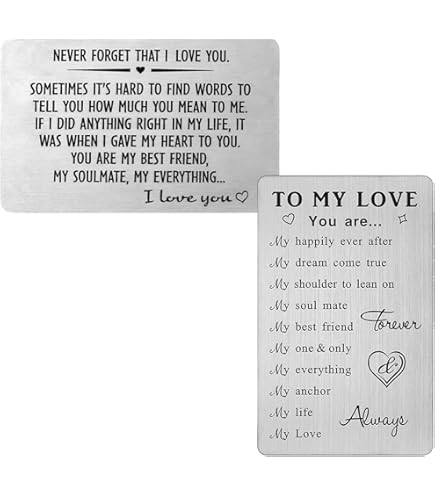 NEVER FORGET THAT I LOVE YOU.
SOMETIMES IT'S HARD TO FIND WORDS TO
TELL YOU HOW MUCH YOU MEAN TO ME.
IF I DID ANYTHING RIGHT IN MY LIFE, IT
WAS WHEN I GAVE MY HEART TO YOU.
YOU ARE MY BEST FRIEND,
MY SOULMATE, MY EVERYTHING...
I love you
TO MY LOVE
You are...
My happily ever after
My dream come true
My shoulder to lean on
My soul mate
My best friend
My one & only
My everything
My anchor
My life
My Love
Forever
&
Always